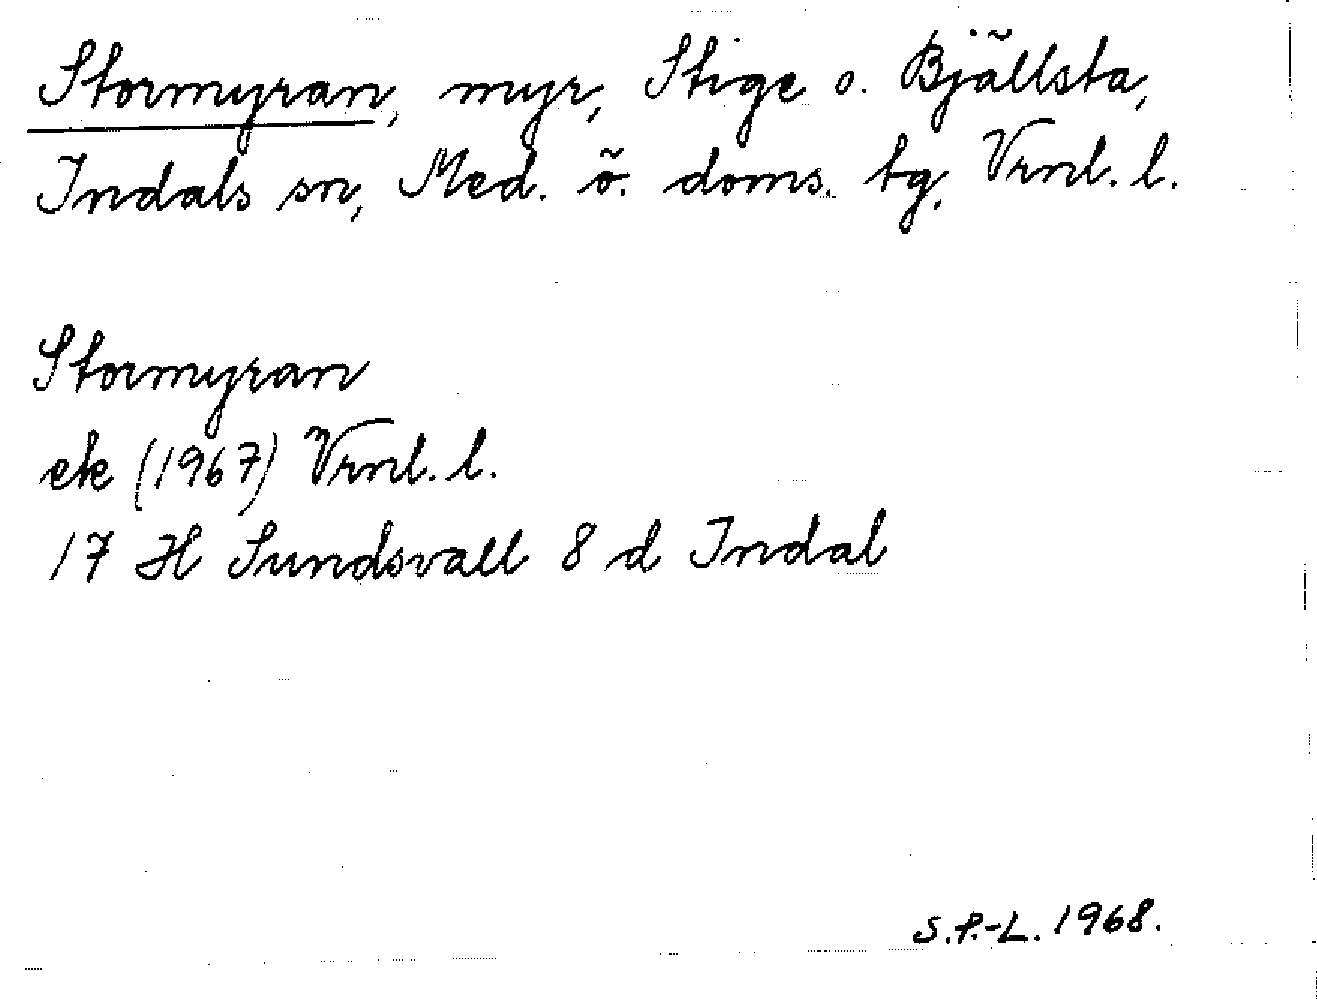 Stormyran, myr, Stige o. Bjällsta,
Indals sn, Med. ö. doms. tg. Vrnl. l.
Stormyran
ek (1967) Vrnl. l.
17 H Sundsvall 8 d Indal
S.P.-L. 1968.